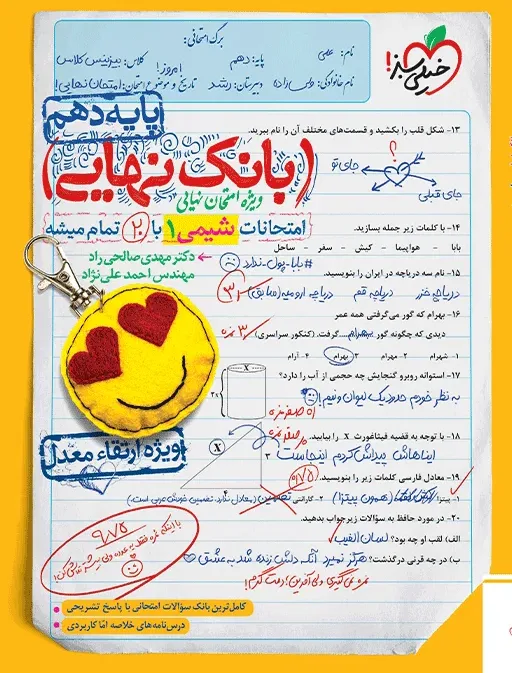 برگ امتحانی:
نام: علی
پایه: دهم
کلاس: بیزینس کلاس
امروز!
نام خانوادگی: ولی زاده
دبیرستان: رشد
تاریخ و موضوع امتحان: امتحان نهایی!
خیلی سبز!
پایه دهم
(بانک نهایی)
ویژه امتحان نهایی
امتحانات شیمی ۱ با ۲۰ تمام میشه
دکتر مهدی صالحی راد
مهندس احمد علی‌نژاد
ویژه ارتقاء معدل
۱۳- شکل قلب را بکشید و قسمت‌های مختلف آن را نام ببرید.
؟
جای تو
جای قبلی
۱۴- با کلمات زیر جمله بسازید.
بابا - هواپیما - کیش - سفر - ساحل
#بابا-پول-ندارد
۱۵- نام سه دریاچه در ایران را بنویسید.
دریاچه خزر دریاچه قم دریاچه ارومیه (سابق)
۱۶- بهرام که گور می‌گرفتی همه عمر
دیدی که چگونه گور بهرام گرفت. (کنکور سراسری)
۳ نمره
۱- شهرام ۲- مهرام ۳- بهرام ۴- آرام
۱۷- استوانه روبرو گنجایش چه حجمی از آب را دارد؟
به نظر خودم حدود یک لیوان و نیم!
x
۱۸- با توجه به قضیه فیثاغورث x را بیابید.
ایناهاش پیداش کردم اینجاست
x
۳
۱۹- معادل فارسی کلمات زیر را بنویسید.
۱- پیتزا (همون پیتزا) ۲- گارانتی تضمین (معادل ندارد. تضمین خودش عربی است.)
۲۰- در مورد حافظ به سؤالات زیر جواب بدهید.
الف) لقب او چه بود؟ لسان الغیب
ب) در چه قرنی درگذشت؟ هرگز نمیرد آنکه دلش زنده شد به عشق
نمره نمی‌گیری ولی آفرین! دمت گرم!
۹/۷۵
کامل‌ترین بانک سؤالات امتحانی با پاسخ تشریحی
درس‌نامه‌های خلاصه امّا کاربردی